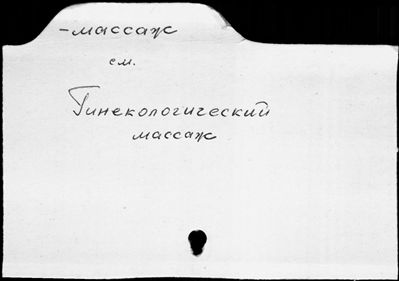 -массаж
см.
Гинекологический
массаж